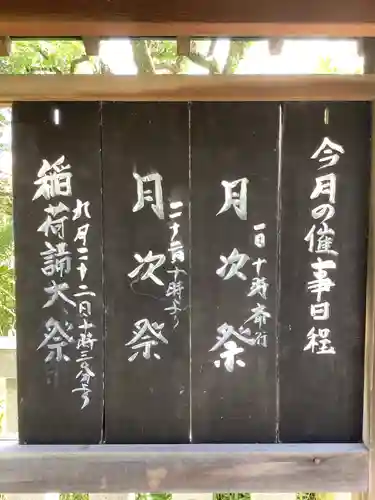 今月の催事日程
月次祭
一日 十時斎行
月次祭
二十二日 十時より
稲荷講大祭
九月二十二日 十時三〇分より